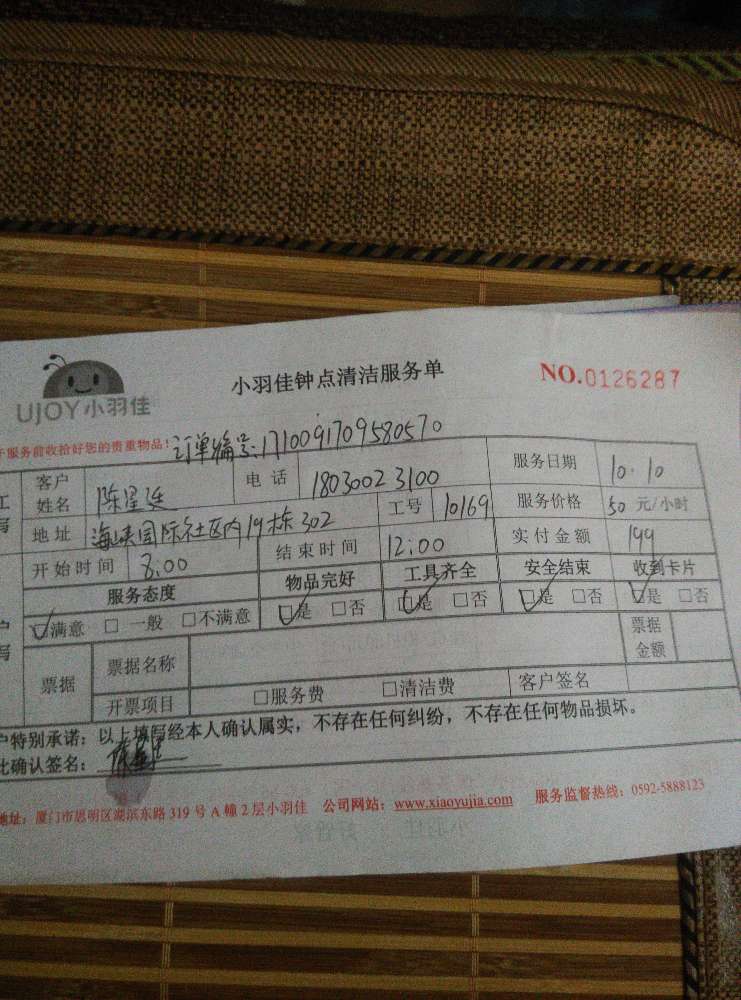 UJOY小羽佳
小羽佳钟点清洁服务单
NO.0126287
于服务前收拾好您的贵重物品!
订单编号:1710091709580570
客户姓名 陈星廷 电话 18030023100 服务日期 10.10
地址 海峡国际社区内19栋302 工号 10169 服务价格 50 元/小时
开始时间 8:00 结束时间 12:00 实付金额 199
服务态度 物品完好 工具齐全 安全结束 收到卡片
☑满意 □一般 □不满意 ☑是 □否 ☑是 □否 ☑是 □否 ☑是 □否
票据 票据名称 票据金额
开票项目 □服务费 □清洁费 客户签名
户特别承诺：以上填写经本人确认属实，不存在任何纠纷，不存在任何物品损坏。
此确认签名：
地址：厦门市思明区湖滨东路319号A幢2层小羽佳 公司网站：www.xiaoyujia.com 服务监督热线：0592-5888123